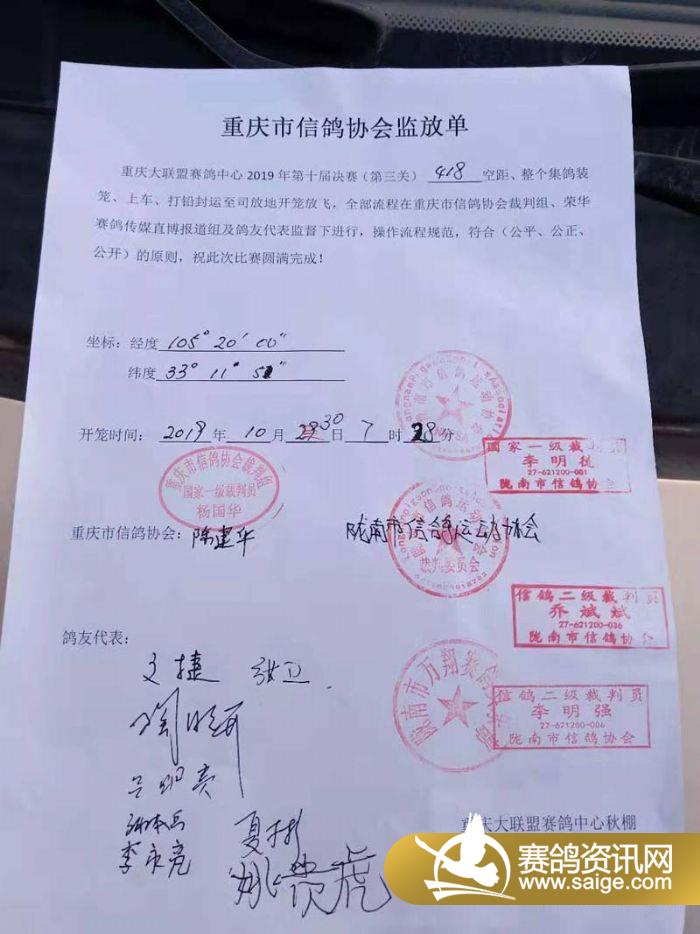 重庆市信鸽协会监放单
重庆大联盟赛鸽中心 2019 年第十届决赛（第三关） 418 空距、整个集鸽装
笼、上车、打铅封运至司放地开笼放飞，全部流程在重庆市信鸽协会裁判组、荣华
赛鸽传媒直博报道组及鸽友代表监督下进行，操作流程规范，符合（公平、公正、
公开）的原则，祝此次比赛圆满完成！
坐标：经度 105° 20′ 00″
纬度 33° 11″
开笼时间： 2019 年 10 月 30 日 7 时 28 分
国家一级裁判员
李明
27-621200-001
陇南市信鸽协会
重庆市信鸽协会裁判组
国家一级裁判员
杨国华
重庆市信鸽协会： 陈建华
陇南市信鸽运动协会
裁判委员会
信鸽二级裁判员
乔斌斌
27-621200-036
陇南市信鸽协会
鸽友代表：
文捷 张卫
陇南市万翔赛鸽
信鸽二级裁判员
李明强
27-621200-006
陇南市信鸽协会
夏彬
李永亮
姚贵虎
重庆大联盟赛鸽中心秋棚
赛鸽资讯网
www.saige.com